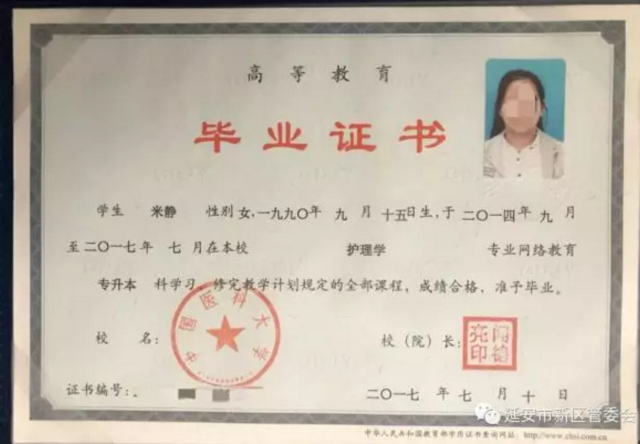 高等教育
毕业证书
学生 米静 性别女,一九九〇年 九 月 十五日生,于二〇一四年 九 月
至二〇一七年 七 月在本校 护理学 专业网络教育
专升本 科学习,修完教学计划规定的全部课程,成绩合格,准予毕业。
校 名:
中国医科大学
校(院)长:
闻德亮印
证书编号:
二〇一七年 七 月 十 日
中华人民共和国教育部学历证书查询网址:http://www.chsi.com.cn
延安市新区管委会